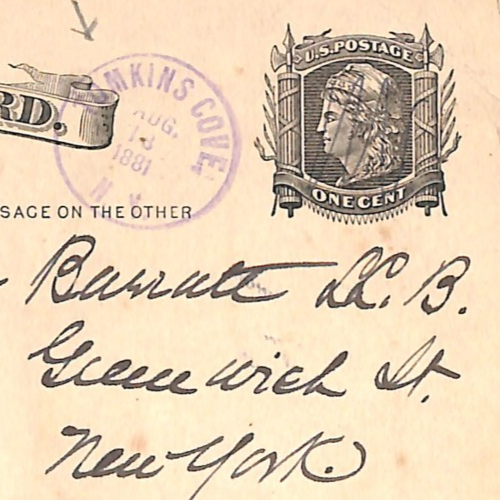 U.S. POSTAGE
MKINS COVE,
AUG.
13
1881
N.Y.
RD.
ONE CENT
SAGE ON THE OTHER
Barratt LL. B.
Greenwich St.
New York.